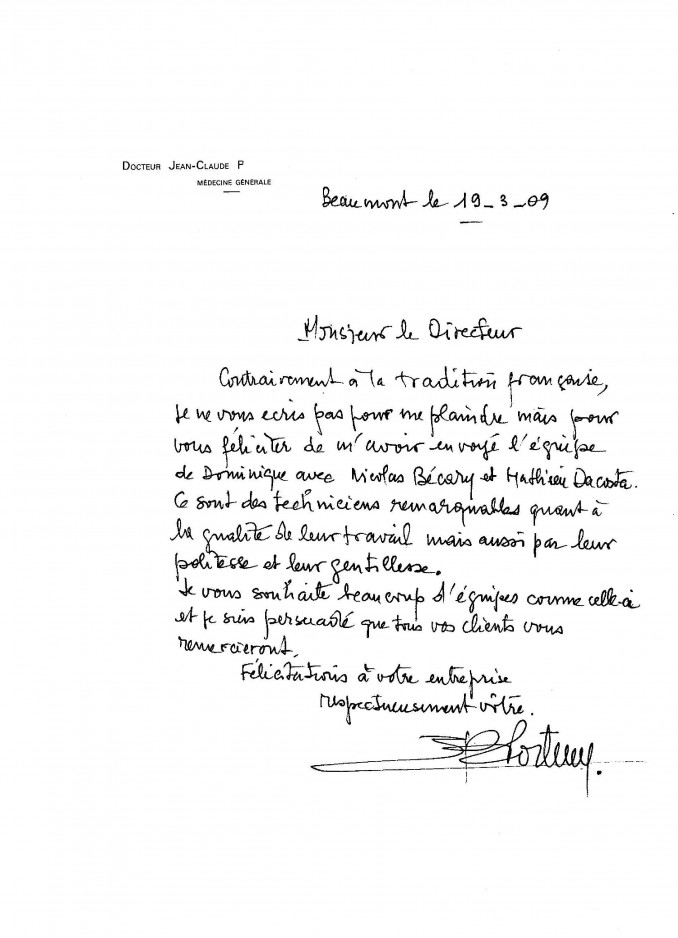 DOCTEUR JEAN-CLAUDE P
MÉDECINE GÉNÉRALE
Beaumont le 19-3-09
Monsieur le Directeur
Contrairement à la tradition française,
Je ne vous écris pas pour me plaindre mais pour
vous féliciter de m'avoir envoyé l'équipe
de Dominique avec Nicolas Bécary et Mathieu Dacosta.
Ce sont des techniciens remarquables quant à
la qualité de leur travail mais aussi par leur
politesse et leur gentillesse.
Je vous souhaite beaucoup d'équipes comme celle-ci
et je suis persuadé que tous vos clients vous
remercieront.
Félicitations à votre entreprise
respectueusement vôtre.